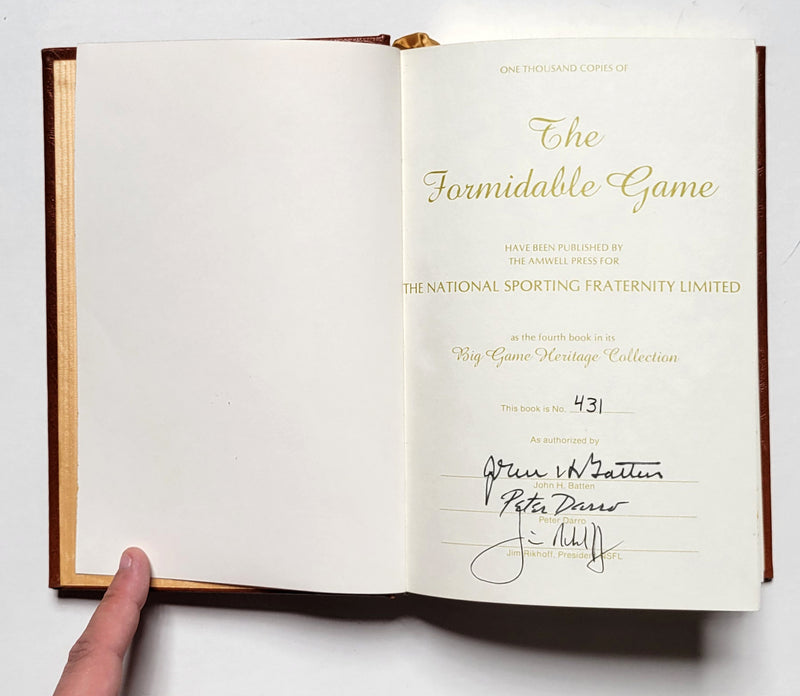 ONE THOUSAND COPIES OF
The
Formidable Game
HAVE BEEN PUBLISHED BY
THE AMWELL PRESS FOR
THE NATIONAL SPORTING FRATERNITY LIMITED
as the fourth book in its
Big Game Heritage Collection
This book is No. 431
As authorized by
John H. Batten
John H. Batten
Peter Darro
Peter Darro
Jim Rikhoff
Jim Rikhoff, President NSFL